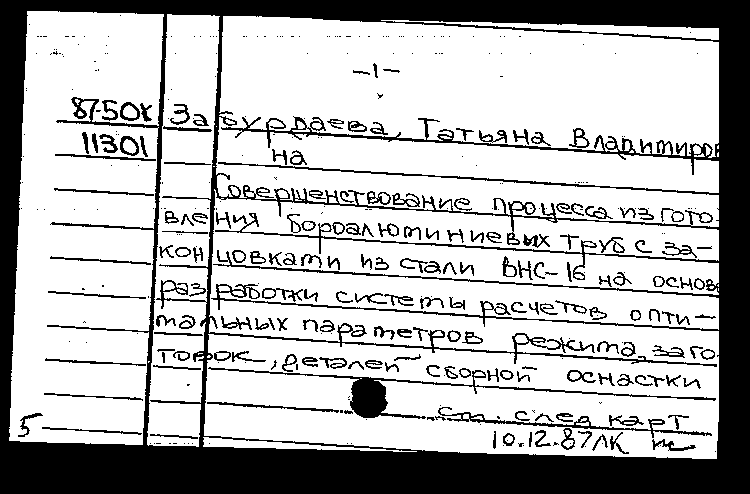 -1-
87-50к За бурдаева, Татьяна Владимиров
11301 на
Совершенствование процесса изгото-
вления бороалюминиевых труб с за-
концовками из стали ВНС-16 на основе
разработки системы расчетов опти-
мальных параметров режима, заго-
товок, деталей сборной оснастки
см. след карт
5 10.12.87 ЛК